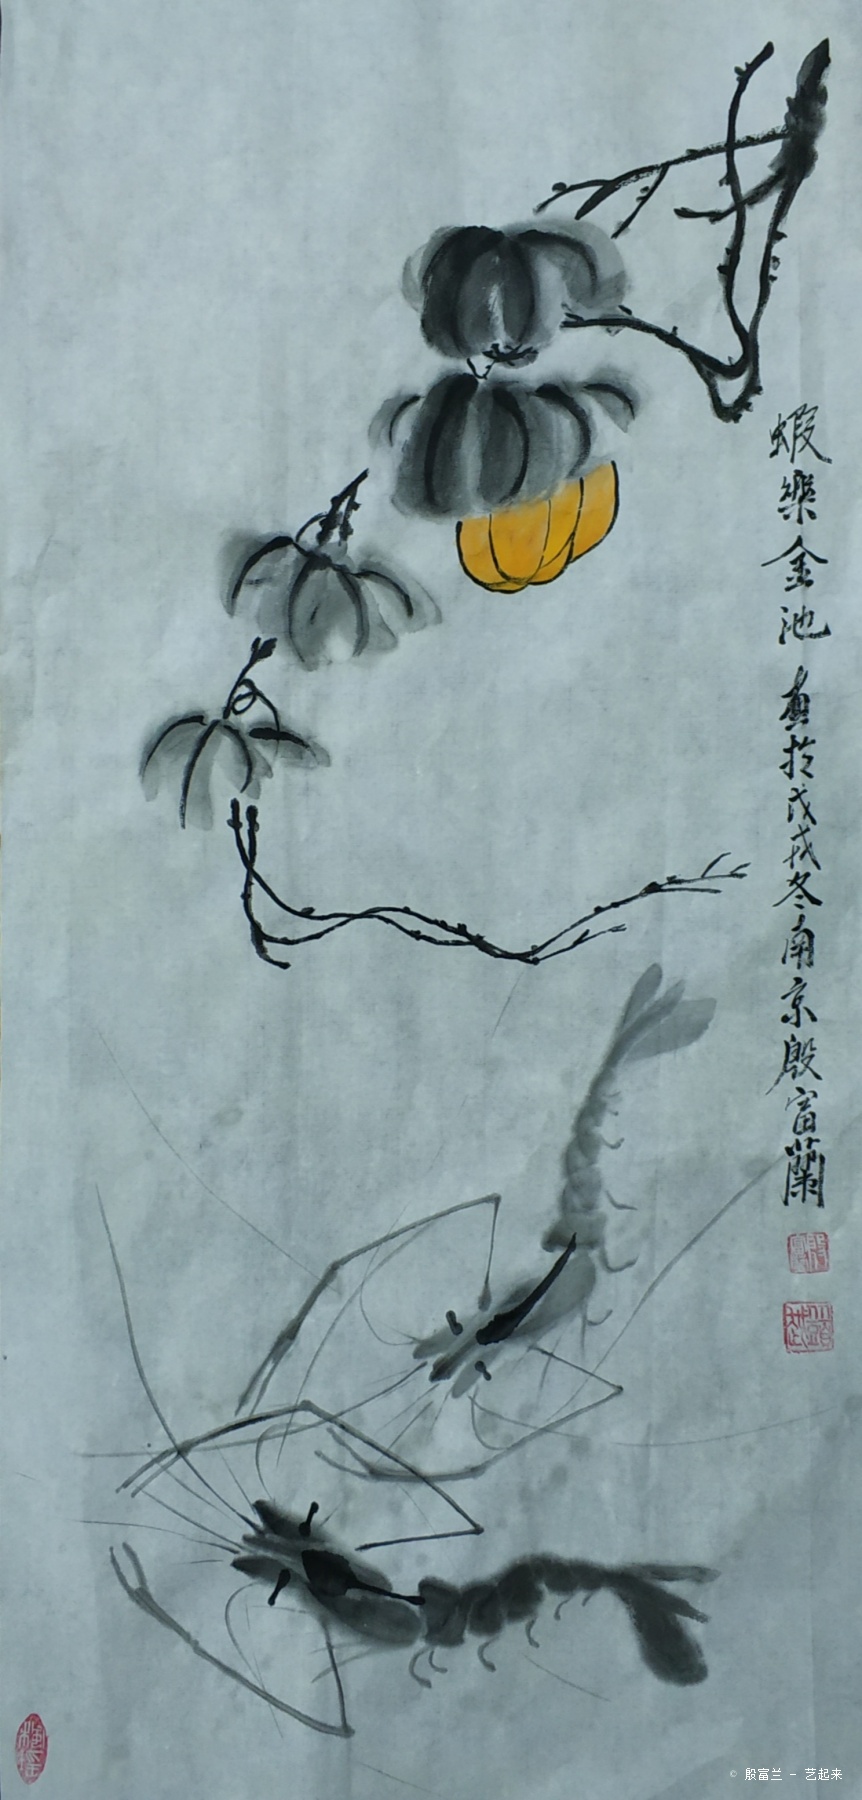 蝦樂金池 畫於戊戌冬南京殷富蘭
© 殷富兰 - 艺起来